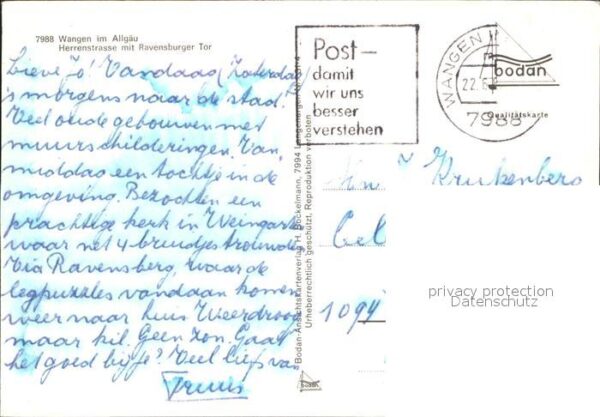 7988 Wangen im Allgäu
Herrenstrasse mit Ravensburger Tor
Lieve Jo! Vandaag (Zaterdag)
's morgens naar de stad!
Veel oude gebouwen met
muurschilderingen. Van
middag een tochtje in de
omgeving. Bezochten een
prachtige kerk in Weingarte
waar net 4 bruidjes trouwden
Via Ravensberg, waar de
legpuzzles vandaan komen
weer naar huis Weer droog
maar kil. Geen zon. Gaat
het goed bij je? Veel liefs van
Truus
Bodan-Ansichtskartenverlag H. Bockelmann, 7994 Langenargen
Urheberrechtlich geschützt, Reproduktion verboten
Post-
damit
wir uns
besser
verstehen
WANGEN
22.
7988
bodan
Qualitätskarte
Krukenberg
1094
privacy protection
Datenschutz
Bodan